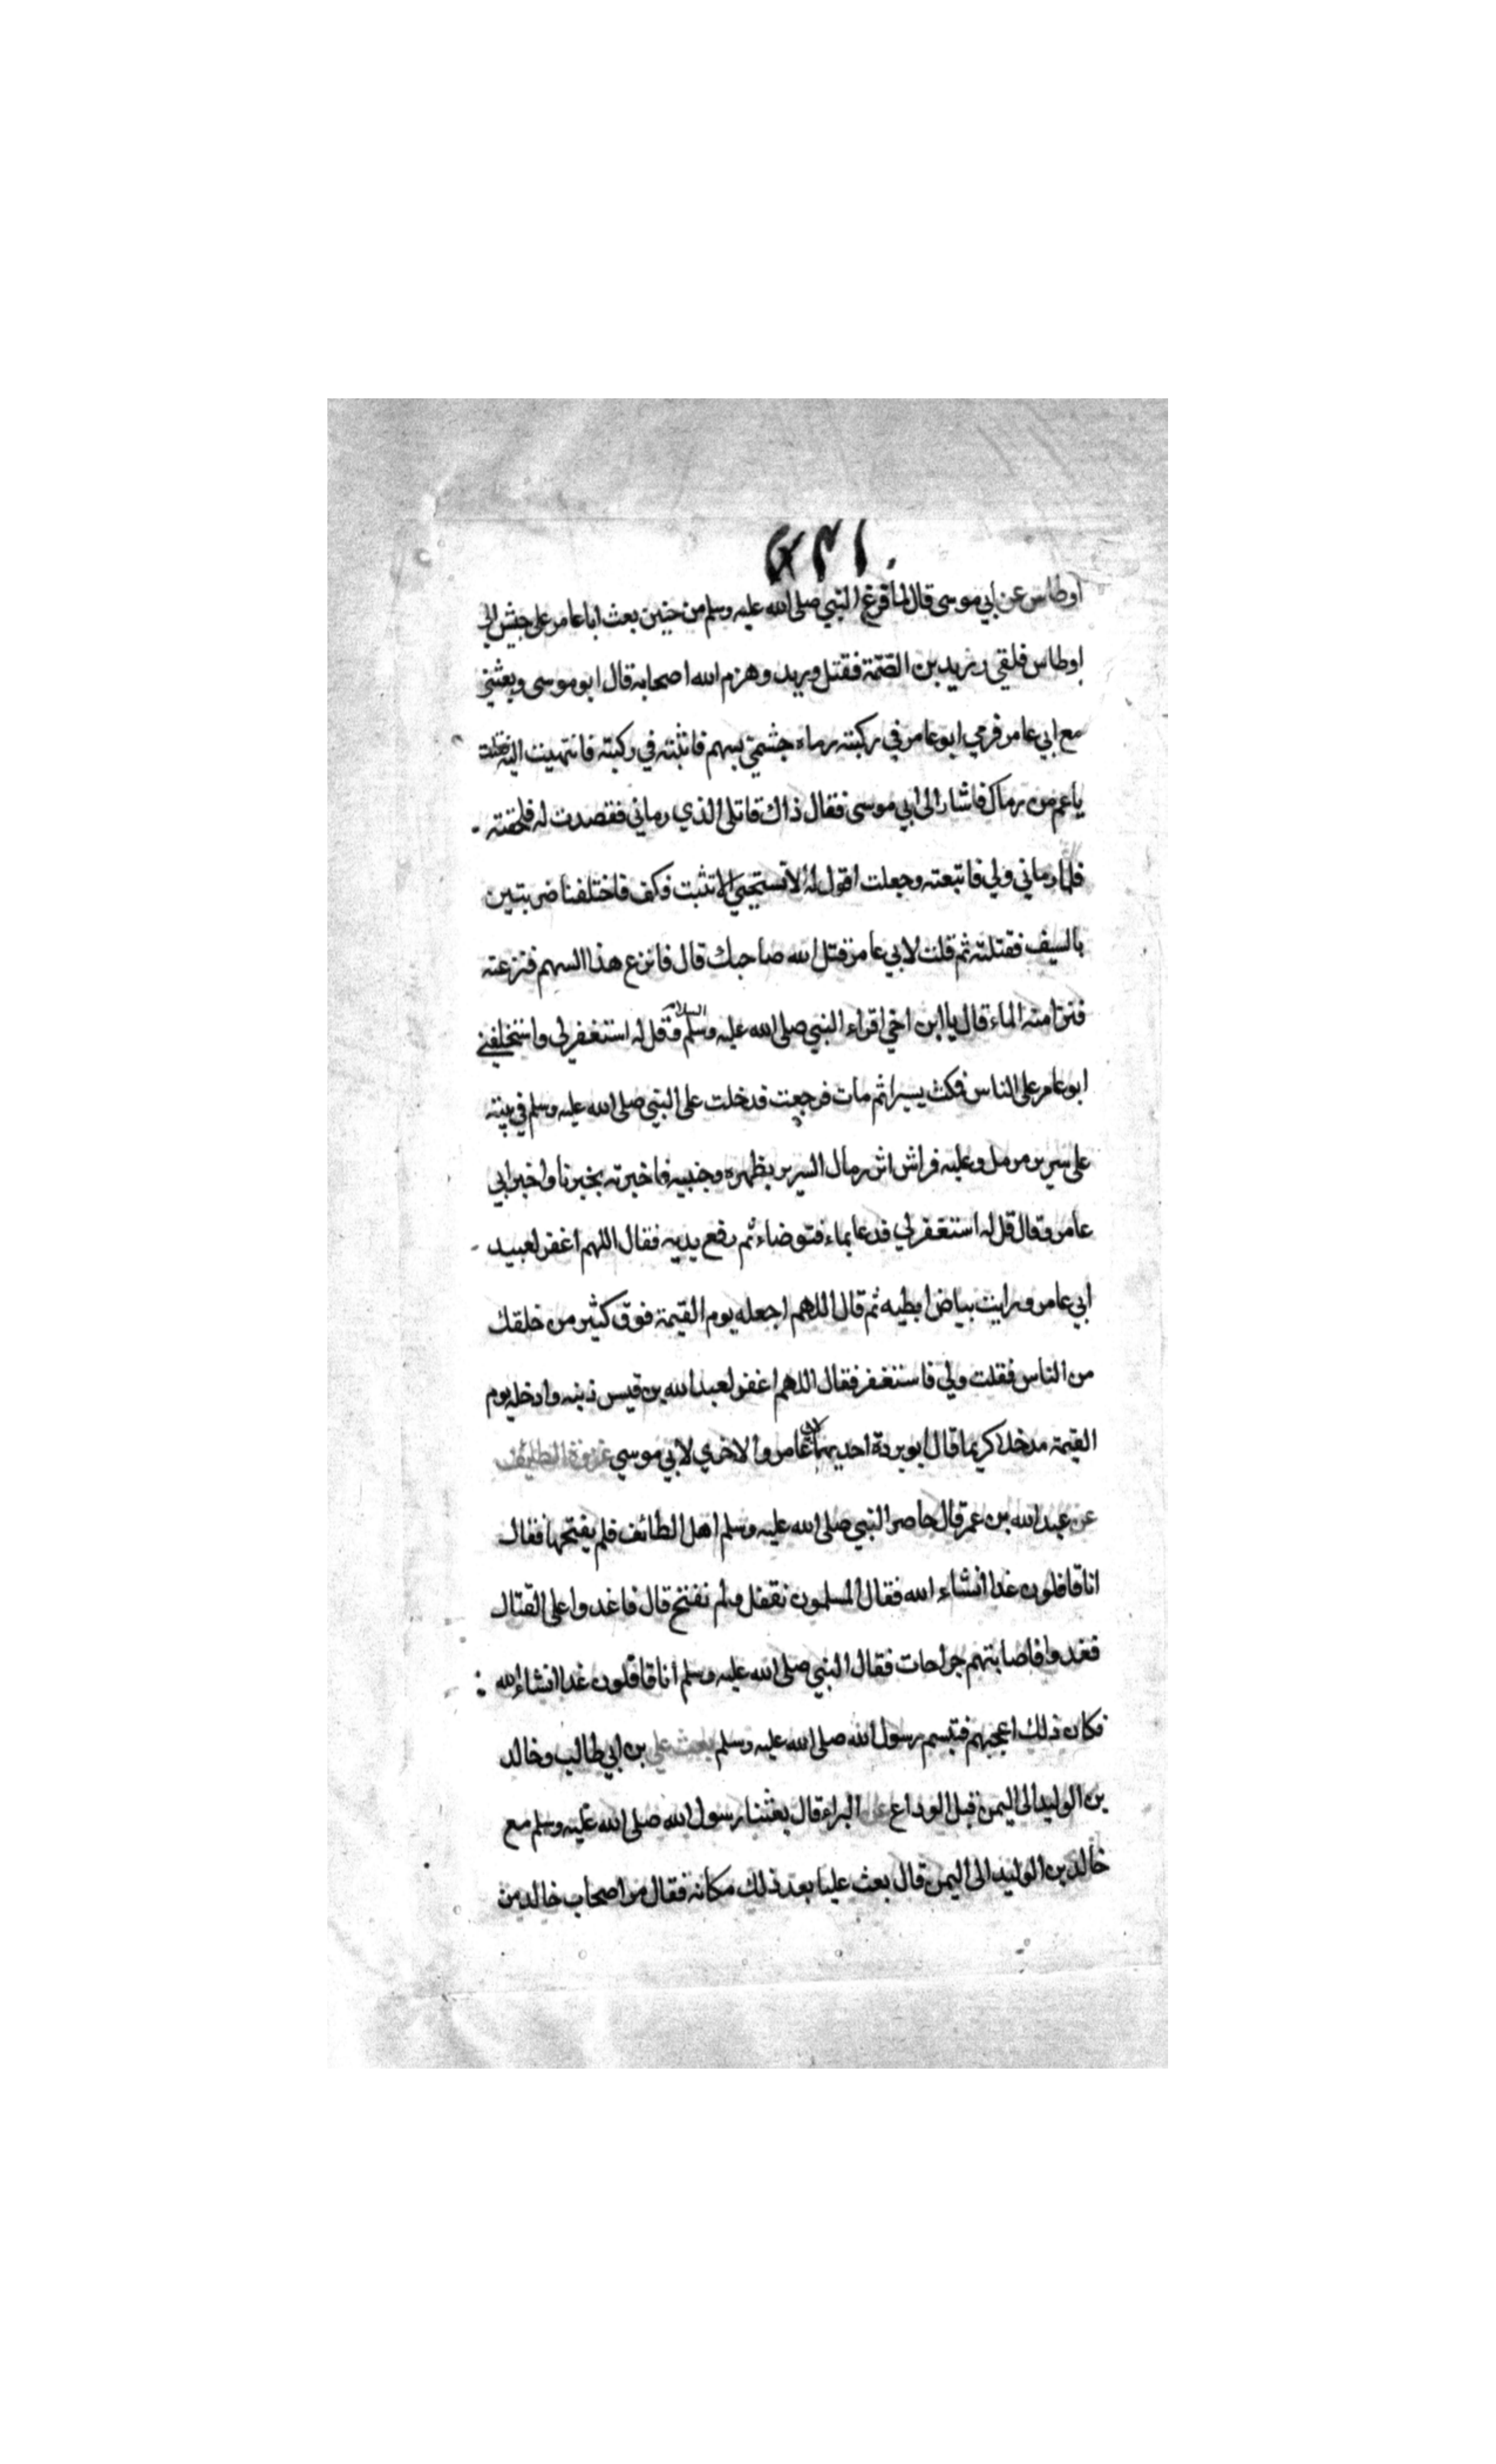 اوطاس عن ابي موسى قال لما فرغ النبي صلى الله عليه وسلم من حنين بعث ابا عامر على جيش الى
اوطاس فلقي دريد بن الصمة فقتل دريد وهزم الله اصحابه قال ابو موسى وبعثني
مع ابي عامر فرمي ابو عامر في ركبته رماه جشمي بسهم فاثبته في ركبته فانتهيت اليه فقلت
يا عم من رماك فاشار الى ابي موسى فقال ذاك قاتلي الذي رماني فقصدت له فلحقته
فلما رماني ولي فاتبعته وجعلت اقول له الا تستحيي الا تثبت فكف فاختلفنا ضربتين
بالسيف فقتلته ثم قلت لابي عامر قتل الله صاحبك قال فانزع هذا السهم فنزعته
فنزا منه الماء قال يا ابن اخي اقراء النبي صلى الله عليه وسلم السلام وقل له استغفر لي واستخلفني
ابو عامر على الناس فمكث يسيرا ثم مات فرجعت فدخلت على النبي صلى الله عليه وسلم في بيته
على سرير مرمل وعليه فراش اثر رمال السرير بظهره وجنبيه فاخبرته بخبرنا واخبر ابي
عامر وقال قل له استغفر لي فدعا بماء فتوضاء ثم رفع يديه فقال اللهم اغفر لعبيد
ابي عامر ورايت بياض ابطيه ثم قال اللهم اجعله يوم القيمة فوق كثير من خلقك
من الناس فقلت ولي فاستغفر فقال اللهم اغفر لعبد الله بن قيس ذنبه وادخله يوم
القيمة مدخلا كريما قال ابو بردة احديهما لابي عامر والاخري لابي موسي غزوة الطايف
عن عبد الله بن عمر قال حاصر النبي صلى الله عليه وسلم اهل الطائف فلم يفتحها فقال
انا قافلون غدا انشاء الله فقال المسلمون نقفل ولم نفتح قال فاغدوا على القتال
فغدوا فاصابتهم جراحات فقال النبي صلى الله عليه وسلم انا قافلون غدا انشاء الله
فكان ذلك اعجبهم فتبسم رسول الله صلى الله عليه وسلم بعث علي بن ابي طالب وخالد
بن الوليد الى اليمن قبل الوداع عن البراء قال بعثنا رسول الله صلى الله عليه وسلم مع
خالد بن الوليد الى اليمن قال بعث عليا بعد ذلك مكانه فقال مر اصحاب خالد من